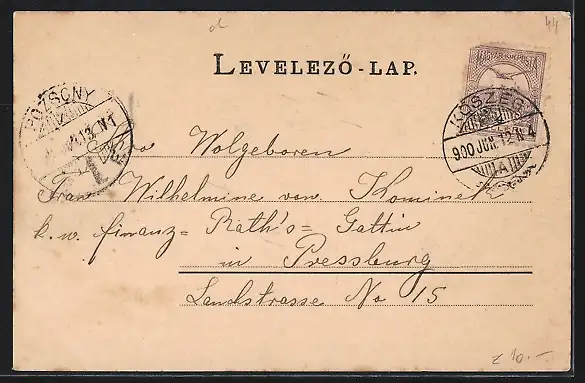 44
LEVELEZŐ-LAP.
MAGYAR KIR. POSTA
KŐSZEG
900 JUN. 12 N 4
A
POZSONY
13 N1
Wolgeboren
Frau Wilhelmine von Kominek
k. u. finanz= Rath's= Gattin
in Pressburg
Landstrasse No 15
z 10.-